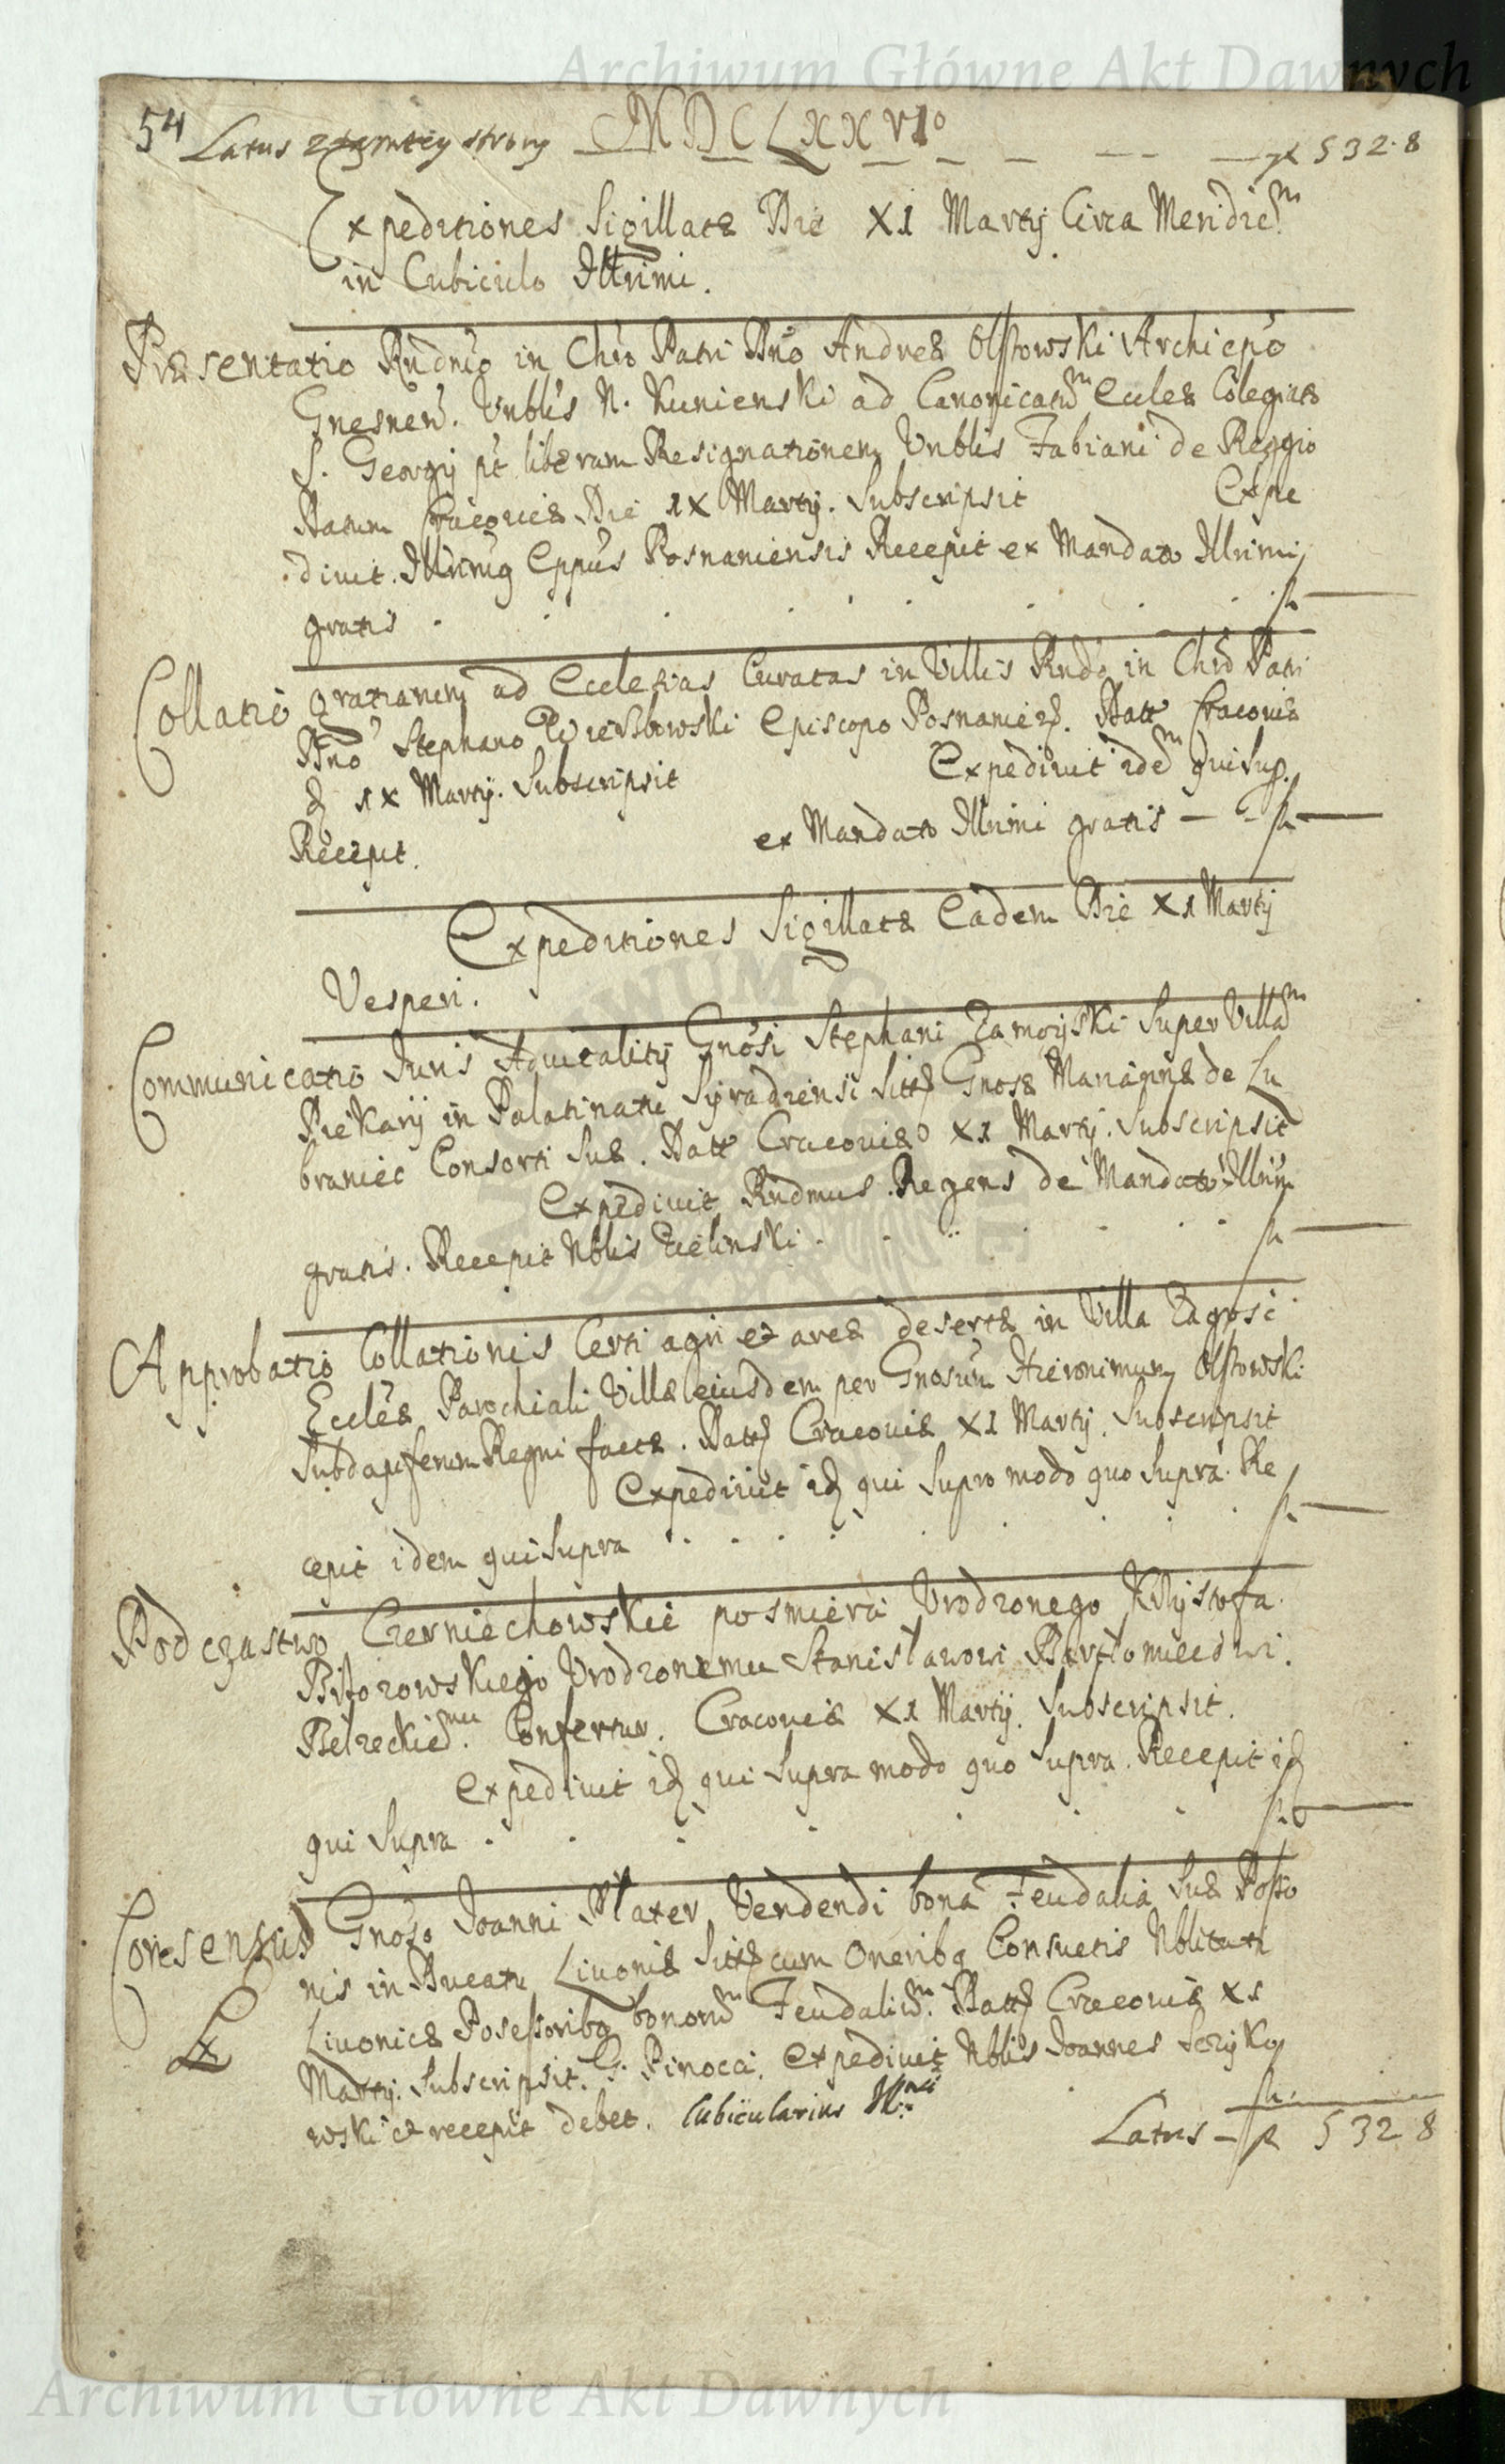 Archiwum Główne Akt Dawnych
54 Latus z tamtey strony MDCLXXVIo 532.8
Expeditiones Sigillatæ Die XI Martij Circa Meridiem
in Cubiculo Illrimi.
Præsentatio Rndmo in Chro Patri Dno Andreæ Olszowski Archiepo
Gnesnen. Vnblis N. Kunienski ad Canonicatum Ecclæ Colegiatæ
S. Georgij pt liberam Resignationem Vnblis Fabiani de Reggio
Datum Cracoviæ Die IX Martij. Subscripsit Expe
divit. Illrimus Eppus Posnaniensis Recepit ex Mandato Illrimi
gratis
Collatio gratianem ad Ecclesias Curatas in Villis Rndo in Chro Patri
Dno Stephano Wierzbowski Episcopo Posnanien. Datt Cracoviæ
d IX Martij. Subscripsit Expedivit idem qui sup.
Recepit. ex Mandato Illrimi gratis
Expeditiones Sigillatæ Eadem Die XI Martij
Vesperi.
Communicatio Juris Advitalitij Gnosi Stephani Zamoyski Super Villam
Piekary in Palatinatu Syradiensi Sitt Gnosæ Mariannæ de Lu
braniec Consorti Suæ. Datt Cracoviæ XI Martij. Subscripsit
Expedivit Rndmus Regens de Mandato Illrim
gratis. Recepit Nblis Zielinski
Approbatio Collationis Certi agri et areæ desertæ in Villa Zagosci
Ecclæ Parochiali Villæ eiusdem per Gnosum Hieronimum Olszowski
Subdapiferum Regni factæ. Datt Cracoviæ XI Martij. Subscripsit
Expedivit id qui Supra modo quo Supra. Re
cepit idem qui Supra
Podczastwo Czerniechowskie po smierci Vrodzonego Krzysztofa
Vrodzonemu Stanisławowi Bartłomieiowi
Belzeckiemu. Confertur. Cracoviæ XI Martij. Subscripsit.
Expedivit id qui Supra modo quo Supra. Recepit id
qui Supra
Consensus Gnoso Joanni Plater Vendendi bona Feudalia Suæ Posso
nis in Ducatu Livoniæ Sitt cum Oneribq Consuetis Nblitati
Livonicæ Posessoribq bonorum Feudalium. Datt Cracoviæ XI
Martij. Subscripsit. H. Pinocci. Expedivit Nblis Joannes
wski et recepit debet. Cubicularius
Latus 532 8
Archiwum Główne Akt Dawnych